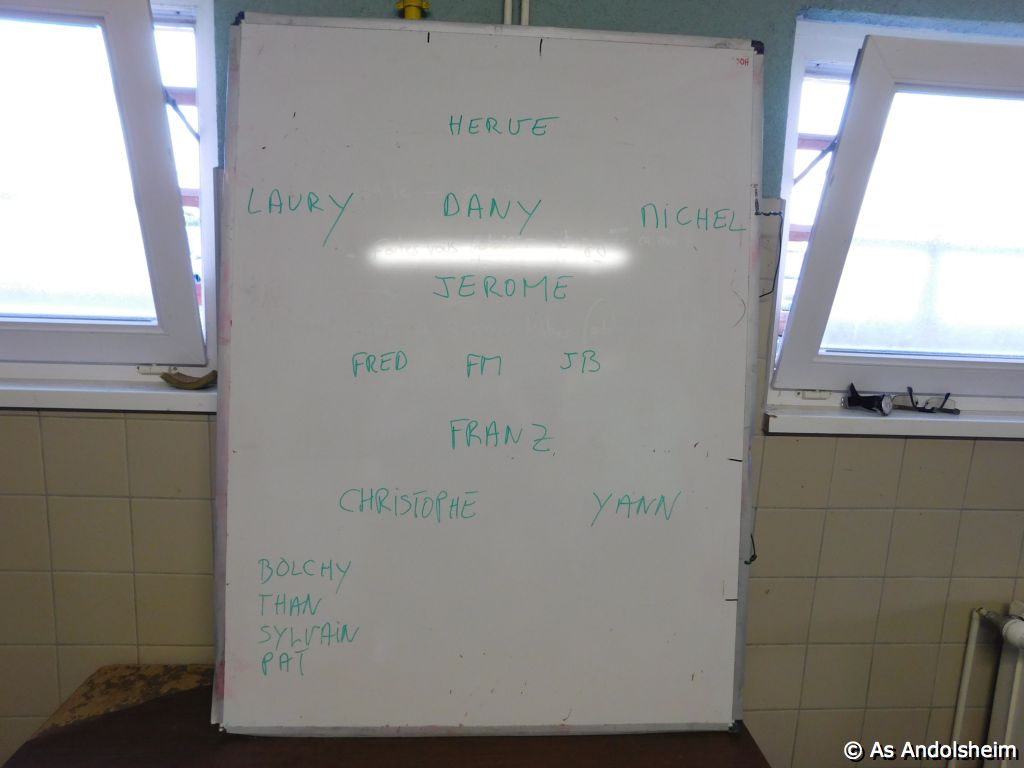 HERVE
LAURY DANY MICHEL
JEROME
FRED FM JB
FRANZ
CHRISTOPHE YANN
BOLCHY
THAN
SYLVAIN
PAT
© As Andolsheim